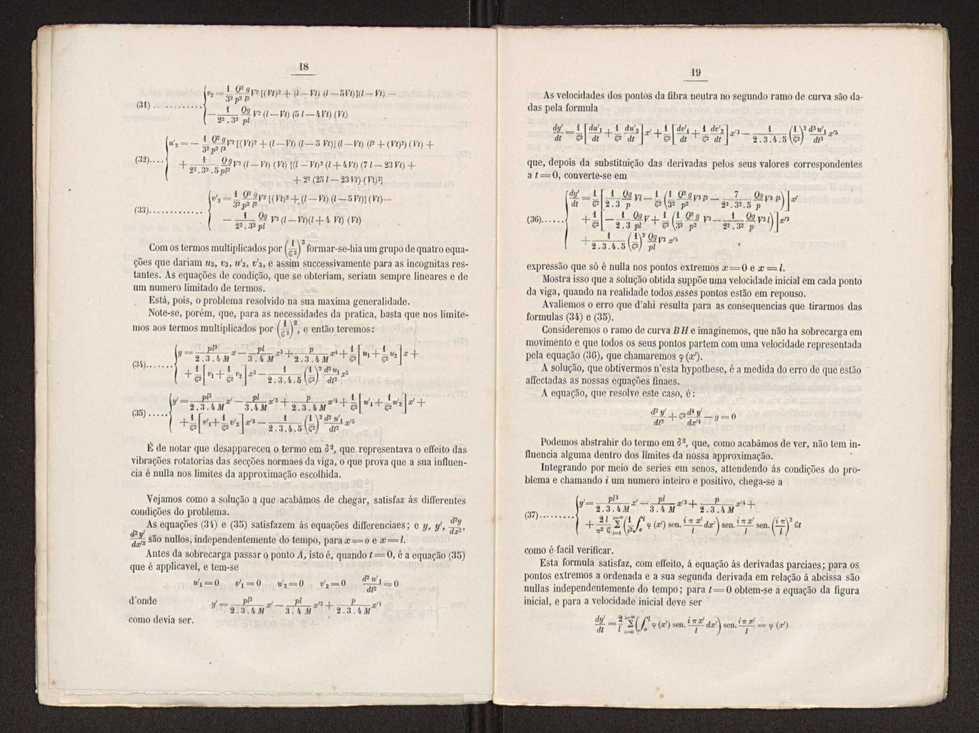 18
(31) ........... { v₂ = 1/3² Q²g/p²l² V² [(Vt)² + (l—Vt) (l—5Vt)](l—Vt) —
— 1/2².3² Qg/pl V² (l—Vt) (5l—4Vt) (Vt)
(32).... { u'₂ = — 1/3² Q²g/p²l² V² [(Vt)² + (l—Vt) (l—5Vt)] (l—Vt) (l² + (Vt)²) (Vt) +
+ 1/2².3².5 Qg/pl² V² (l—Vt) (Vt) [(l—Vt)² (l+4Vt) (7l—23Vt) +
+ 2² (25l—23Vt) (Vt)³]
(33)............. { v'₂ = 1/3² Q²g/p²l² V² [(Vt)² + (l—Vt) (l—5Vt)] (Vt) —
— 1/2².3² Qg/pl V² (l—Vt) (l+4Vt) (Vt)
Com os termos multiplicados por (1/ζ²)³ formar-se-hia um grupo de quatro equa-
ções que dariam u₃, v₃, u'₃, v'₃, e assim successivamente para as incognitas res-
tantes. As equações de condição, que se obteriam, seriam sempre lineares e de
um numero limitado de termos.
Está, pois, o problema resolvido na sua maxima generalidade.
Note-se, porém, que, para as necessidades da pratica, basta que nos limite-
mos aos termos multiplicados por (1/ζ²)², e então teremos:
(34)....... { y = pl³/2.3.4M x — pl/3.4M x³ + p/2.3.4M x⁴ + 1/ζ² [u₁ + 1/ζ² u₂] x +
+ 1/ζ² [v₁ + 1/ζ² v₂] x³ — 1/2.3.4.5 (1/ζ²)² d²u₁/dt² x⁵
(35)..... { y' = pl³/2.3.4M x' — pl/3.4M x'³ + p/2.3.4M x'⁴ + 1/ζ² [u'₁ + 1/ζ² u'₂] x' +
+ 1/ζ² [v'₁ + 1/ζ² v'₂] x'³ — 1/2.3.4.5 (1/ζ²)² d²u'₁/dt² x'⁵
É de notar que desappareceu o termo em δ², que representava o effeito das
vibrações rotatorias das secções normaes da viga, o que prova que a sua influen-
cia é nulla nos limites da approximação escolhida.
Vejamos como a solução a que acabâmos de chegar, satisfaz ás differentes
condições do problema.
As equações (34) e (35) satisfazem ás equações differenciaes; e y, y', d²y/dx²,
d²y'/dx'² são nullos, independentemente do tempo, para x=o e x=l.
Antes da sobrecarga passar o ponto A, isto é, quando t=0, é a equação (35)
que é applicavel, e tem-se
u'₁=0 v'₁=0 u'₂=0 v'₂=0 d²u'₁/dt²=0
d'onde y' = pl³/2.3.4M x' — pl/3.4M x'³ + p/2.3.4M x'⁴
como devia ser.
19
As velocidades dos pontos da fibra neutra no segundo ramo de curva são da-
das pela formula
dy'/dt = 1/ζ² [du'₁/dt + 1/ζ² du'₂/dt] x' + 1/ζ² [dv'₁/dt + 1/ζ² dv'₂/dt] x'³ — 1/2.3.4.5 (1/ζ²)² d³u'₁/dt³ x'⁵
que, depois da substituição das derivadas pelos seus valores correspondentes
a t=0, converte-se em
(36)...... { dy'/dt = 1/ζ² [1/2.3 Qg/p Vl — 1/ζ² (1/3² Q²g/p² V³l² — 7/2².3².5 Qg/p V³l³)] x'
+ 1/ζ² [— 1/2.3 Qg/pl V + 1/ζ² (1/3² Q²g/p² V³ — 1/2².3² Qg/p V³l)] x'³
+ 1/2.3.4.5 (1/ζ²)² Qg/pl V³ x'⁵
expressão que só é nulla nos pontos extremos x=0 e x=l.
Mostra isto que a solução obtida suppõe uma velocidade inicial em cada ponto
da viga, quando na realidade todos esses pontos estão em repouso.
Avaliemos o erro que d'ahi resulta para as consequencias que tirarmos das
formulas (34) e (35).
Consideremos o ramo de curva BH e imaginemos, que não ha sobrecarga em
movimento e que todos os seus pontos partem com uma velocidade representada
pela equação (36), que chamaremos φ (x').
A solução, que obtivermos n'esta hypothese, é a medida do erro de que estão
affectadas as nossas equações finaes.
A equação, que resolve este caso, é:
d²y'/dt² + ζ² d⁴y'/dx'⁴ — g = 0
Podemos abstrahir do termo em δ², que, como acabâmos de ver, não tem in-
fluencia alguma dentro dos limites da nossa approximação.
Integrando por meio de series em senos, attendendo ás condições do pro-
blema e chamando i um numero inteiro e positivo, chega-se a
(37)......... { y' = pl³/2.3.4M x' — pl/3.4M x'³ + p/2.3.4M x'⁴ +
+ 2l/π²ζ Σ (1/i² ∫ φ (x') sen. iπx'/l dx') sen. iπx'/l sen. (iπ/l)² ζt
como é facil verificar.
Esta formula satisfaz, com effeito, á equação ás derivadas parciaes; para os
pontos extremos a ordenada e a sua segunda derivada em relação á abcissa são
nullas independentemente do tempo; para t=0 obtem-se a equação da figura
inicial, e para a velocidade inicial deve ser
dy'/dt = 2/l Σ (∫ φ (x') sen. iπx'/l dx') sen. iπx'/l = φ (x')